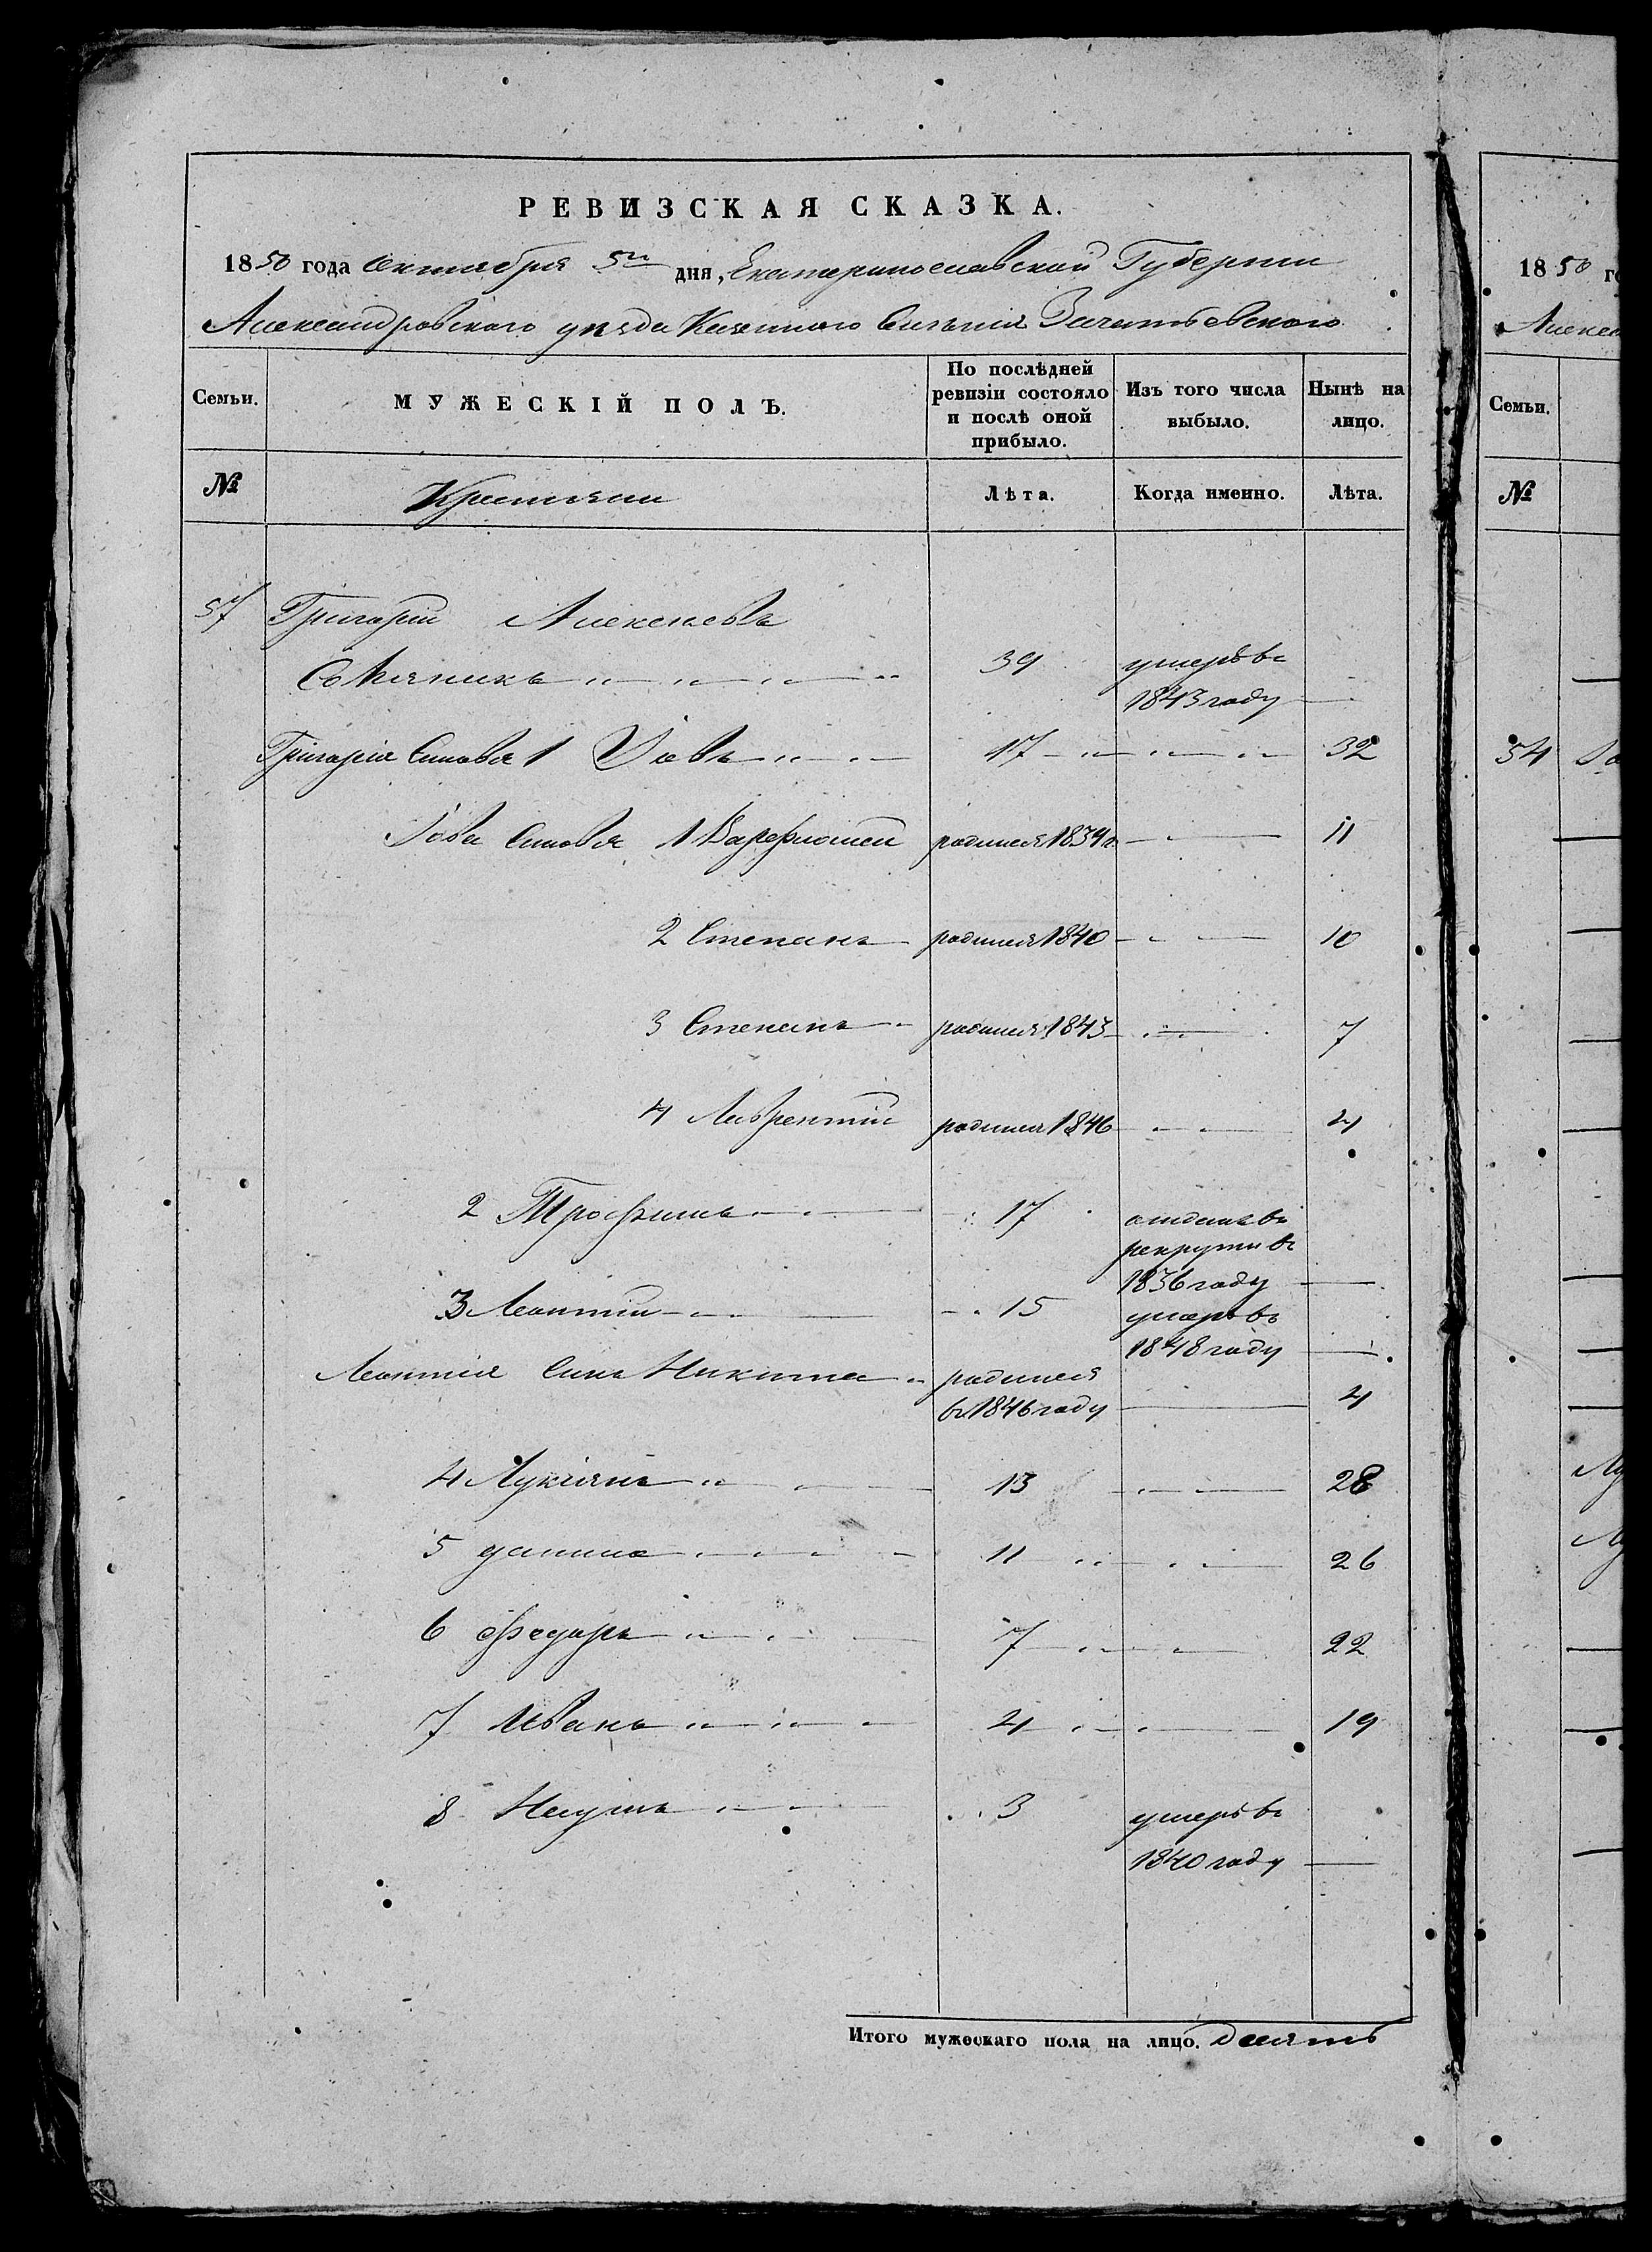 РЕВИЗСКАЯ СКАЗКА.
1850 года октября 5го дня, Екатеринославской Губернии
Александровского уезда Казенного Селения Зачатьевского
Семьи. МУЖЕСКІЙ ПОЛЪ. По послѣдней ревизіи состояло и послѣ оной прибыло. Изъ того числа выбыло. Нынѣ на лицо.
№ Крестьяни Лѣта. Когда именно. Лѣта.
57 Григорій Алексеевъ
39 умеръ въ
1843 году
Григорія Сыновья 1 Іовъ 17 32
Іова Сыновья 1 Варфломей родился 1839 г 11
2 Степанъ родился 1840 10
3 Степанъ родился 1843 7
4 Лаврентій родился 1846 4
2 Трофимъ 17 отданъ въ
рекруты въ
1836 году
3 Леонтій 15 умеръ въ
1848 году
Леонтія Сынъ Никита родился
въ 1846 году 4
4 Лукіянъ 13 28
5 данило 11 26
6 Федоръ 7 22
7 Иванъ 4 19
8 Наумъ 3 умеръ въ
1840 году
Итого мужескаго пола на лицо. десять
1850 г
Алекса
Семьи.
№
54